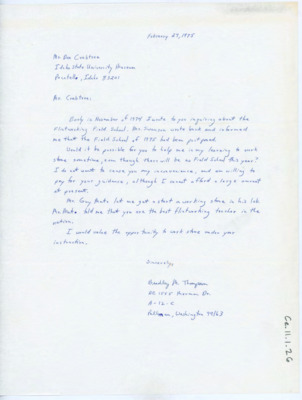 February 27, 1975
Mr. Don Crabtree
Idaho State University Museum
Pocatello, Idaho 83201
Mr. Crabtree:
Early in November of 1974 I wrote to you inquiring about the
Flintworking Field School. Mr. Swanson wrote back and informed
me that the Field School of 1975 had been postponed.
Would it be possible for you to help me in my learning to work
stone sometime, even though there will be no Field School this year?
I do not want to cause you any inconvenience, and am willing to
pay for your guidance, although I cannot afford a large amount
at present.
Mr. Guy Muto let me get a start a working stone, in his lab.
Mr. Muto told me that you are the best flintworking teacher in the
nation.
I would value the opportunity to work stone under your
instruction.
Sincerely,
Bradley M. Thompson
Pullman, Washington 99163
A-12-C
Ce.11.1.26